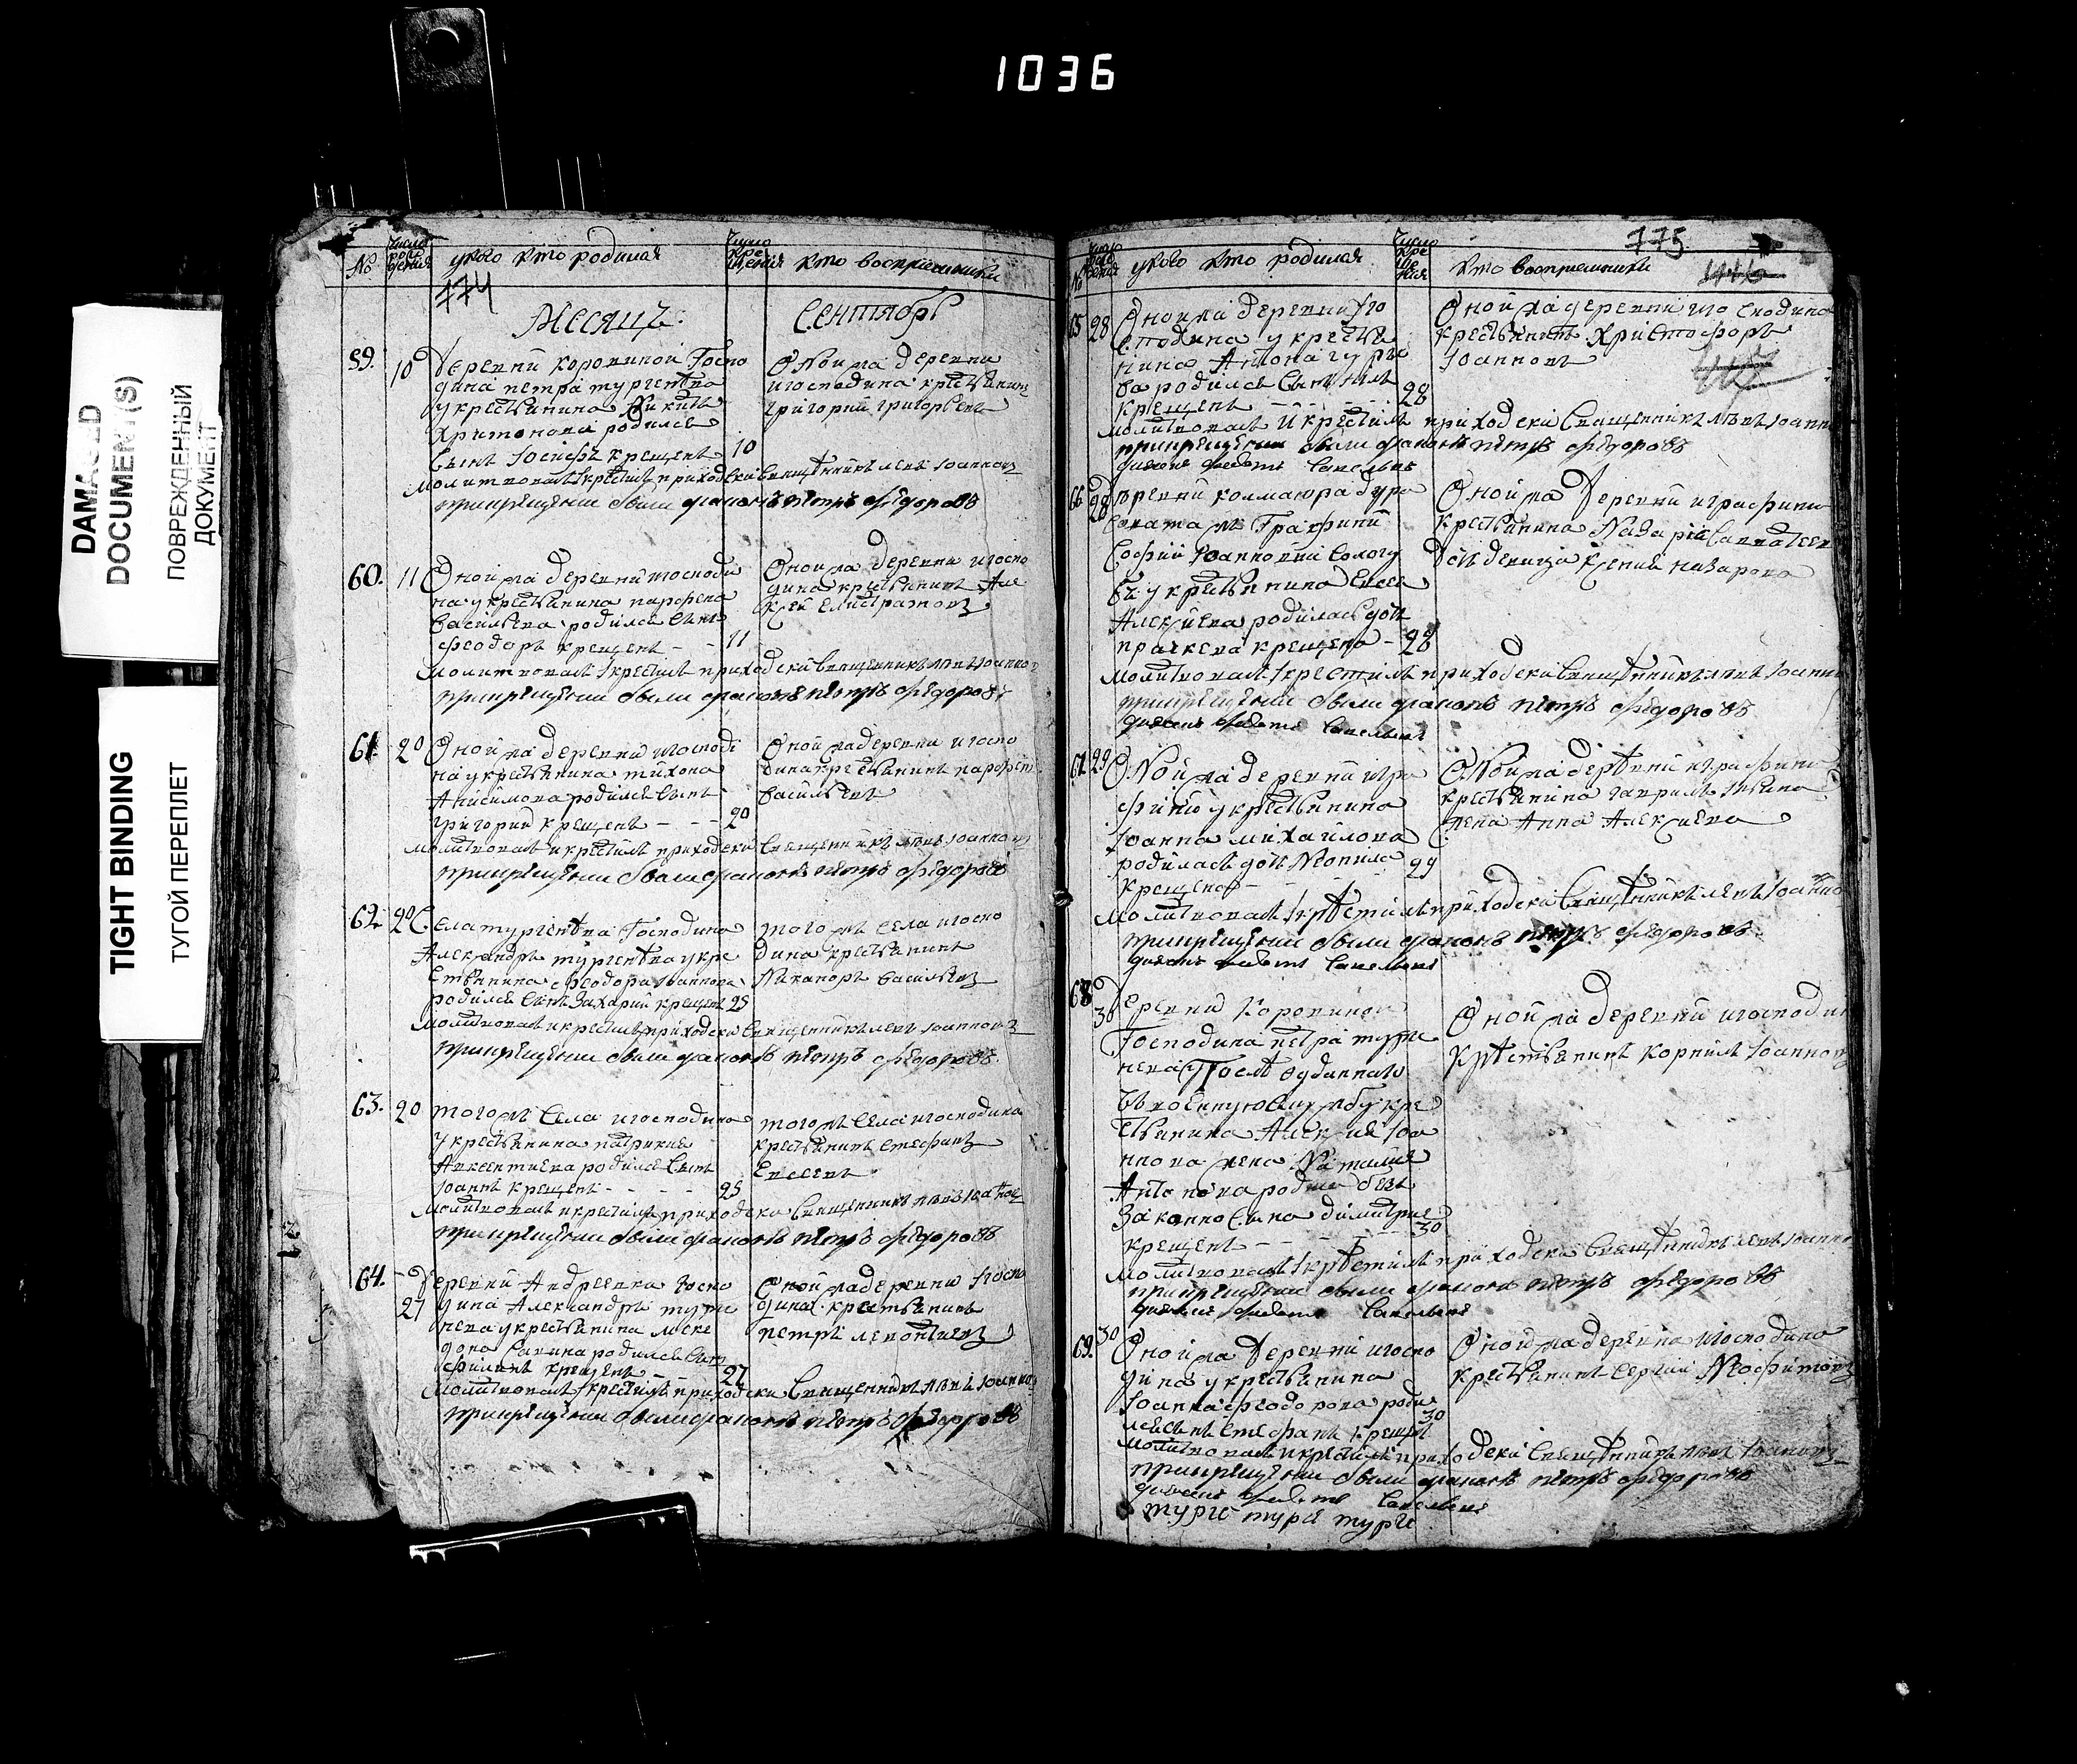 1036
DAMAGED
DOCUMENT(S)
ПОВРЕЖДЕННЫЙ
ДОКУМЕНТ
TIGHT BINDING
ТУГОЙ ПЕРЕПЛЕТ
№ Число рождения у кого кто родился Число крещения кто восприемники
774
Месяцъ: Сентябрь
59. 10 Деревни Коровиной Госпо
дина петра тургенева
у крестьянина Никиты
Харитонова родился
Сынъ Іосифъ крещенъ 10
Оной жа деревни
и господина крестьянинъ
григорий григорьевъ
молитвовалъ і крестилъ приходский священникъ левъ Іоанновъ
при крещении были дьячокъ петръ федоровъ
60. 11 Оной жа деревни господи
на у крестьянина парфена
Васильева родился сынъ
феодоръ крещенъ - - 11
Оной жа деревни и госпо
дина крестьянинъ Але
ксей Елистратовъ
молитвовалъ і крестилъ приходский священникъ левъ Іоаннов
при крещении были дьячокъ петръ федоровъ
61 20 Оной жа деревни и господи
на у крестьянина тихона
Анисимова родился сынъ
григорий крещенъ - - - 20
Оной жа деревни и госпо
дина крестьянинъ парфен
Васильевъ
молитвовалъ и крестилъ приходский священникъ левъ Іоанновъ
при крещении были дьячокъ петръ федоровъ
62 20 Села тургенева Господина
Александръ тургенева у кре
стьянина феодора Іоаннова
родился сынъ Захарий крещенъ 25
того жъ села и госпо
дина крестьянинъ
Никаноръ Васильевъ
молитвовалъ и крестилъ приходский священникъ левъ Іоанновъ
при крещении были дьячокъ петръ федоровъ
63. 20 того жъ села и господина
у крестьянина патрикия
Авксентиева родился сынъ
Іоаннъ крещенъ - - - 25
того жъ села и господина
крестьянинъ стефанъ
Евсевъ
молитвовалъ и крестилъ приходский священникъ левъ
при крещении были дьячокъ петръ федоровъ
64. 27 Деревни Андреевка госпо
дина Александръ турге
нева у крестьянина
Савина родился сынъ
филипъ крещенъ - - 27
Оной жа деревни і госпо
дина крестьянинъ
петръ леонтиевъ
молитвовалъ і крестилъ приходский священникъ левъ Іоаннов
при крещении были дьячокъ петръ федоровъ
775
№ у кого кто родился кто восприемники
65 28 Оной жа деревни і го
сподина у крестья
нина Антона гурье
ва родился сынъ
крещенъ - - - 28
Оной жа деревни и господина
крестьянинъ Христофоръ
Іоанновъ
молитвовалъ и крестилъ приходский священникъ левъ Іоанн
при крещении были дьячокъ петръ федоровъ
66 28 Деревни
Графини
Софии Іоанновны Сологу
бъ у крестьянина Евсея
Алексиева родилась дочь
праскева крещена - 28
Оной жа деревни и графини
крестьянина Назария
дочь девица Ксения назарова
молитвовалъ і крестилъ приходский священникъ левъ Іоанн
при крещении были дьячокъ петръ федоровъ
67 29 Оной жа деревни и гра
фини у крестьянина
Іоанна михайлова
родилась дочь Неонила 29
крещена -
Оной жа деревни и графини
крестьянина гаврила
жена Анна Алексиева
молитвовалъ і крестилъ приходский священникъ левъ Іоанно
при крещении были дьячокъ петръ федоровъ
68 30 Деревни Коровиной
Господина петра турге
нева После отданнаго
въ военную службу кре
стьянина Алексия Іоа
ннова жена Наталия
Антонова родила безъ
законно сына димитрие
крещенъ - - - 30
Оной жа деревни и господин
крестьянинъ Корнилъ Іоанновъ
молитвовалъ і крестилъ приходский священникъ левъ Іоанно
при крещении были дьячокъ петръ федоровъ
69. 30 Оной жа деревни и госпо
дина у крестьянина
Іоанна феодорова роди
лся сынъ Стефанъ крещенъ 30
Оной жа деревни и господина
крестьянинъ Сергий Неофитовъ
молитвовалъ и крестилъ приходский священникъ левъ Іоанновъ
при крещении были дьячокъ петръ федоровъ
турге турге турге